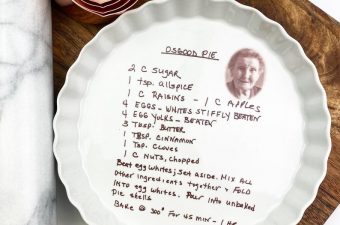 OSGOOD PIE
2 C SUGAR
1 tsp. allspice
1 C RAISINS - 1 C APPLES
4 EGGS - WHITES STIFFLY BEATEN
4 EGG YOLKS - BEATEN
3 TBSP. BUTTER
1 TBSP. CINNAMON
1 TSP. CLOVES
1 C NUTS, CHOPPED
Beat egg whites; set aside. MIX ALL
Other ingredients together & FOLD
INTO egg whites. Pour into unbaked
Pie shells
BAKE @ 300° FOR 45 MIN - 1 HR